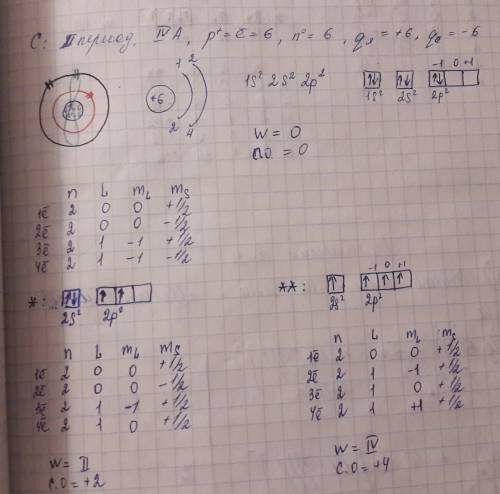 C: II период, IV A, p⁺ = ē = 6, n⁰ = 6, qя = +6, qē = -6
1 2
+6
2 4
1s² 2s² 2p²
-1 0 +1
↑↓ ↑↓ ↑↓
1s² 2s² 2p²
W = 0
с.о. = 0
n L mL mS
1ē 2 0 0 +1/2
2ē 2 0 0 -1/2
3ē 2 1 -1 +1/2
4ē 2 1 -1 -1/2
*: ↑↓ ↑ ↑
2s² 2p²
n L mL mS
1ē 2 0 0 +1/2
2ē 2 0 0 -1/2
3ē 2 1 -1 +1/2
4ē 2 1 0 +1/2
W = II
с.о = +2
-1 0 +1
**: ↑ ↑ ↑ ↑
2s² 2p²
n L mL mS
1ē 2 0 0 +1/2
2ē 2 1 -1 +1/2
3ē 2 1 0 +1/2
4ē 2 1 +1 +1/2
W = IV
с.о = +4